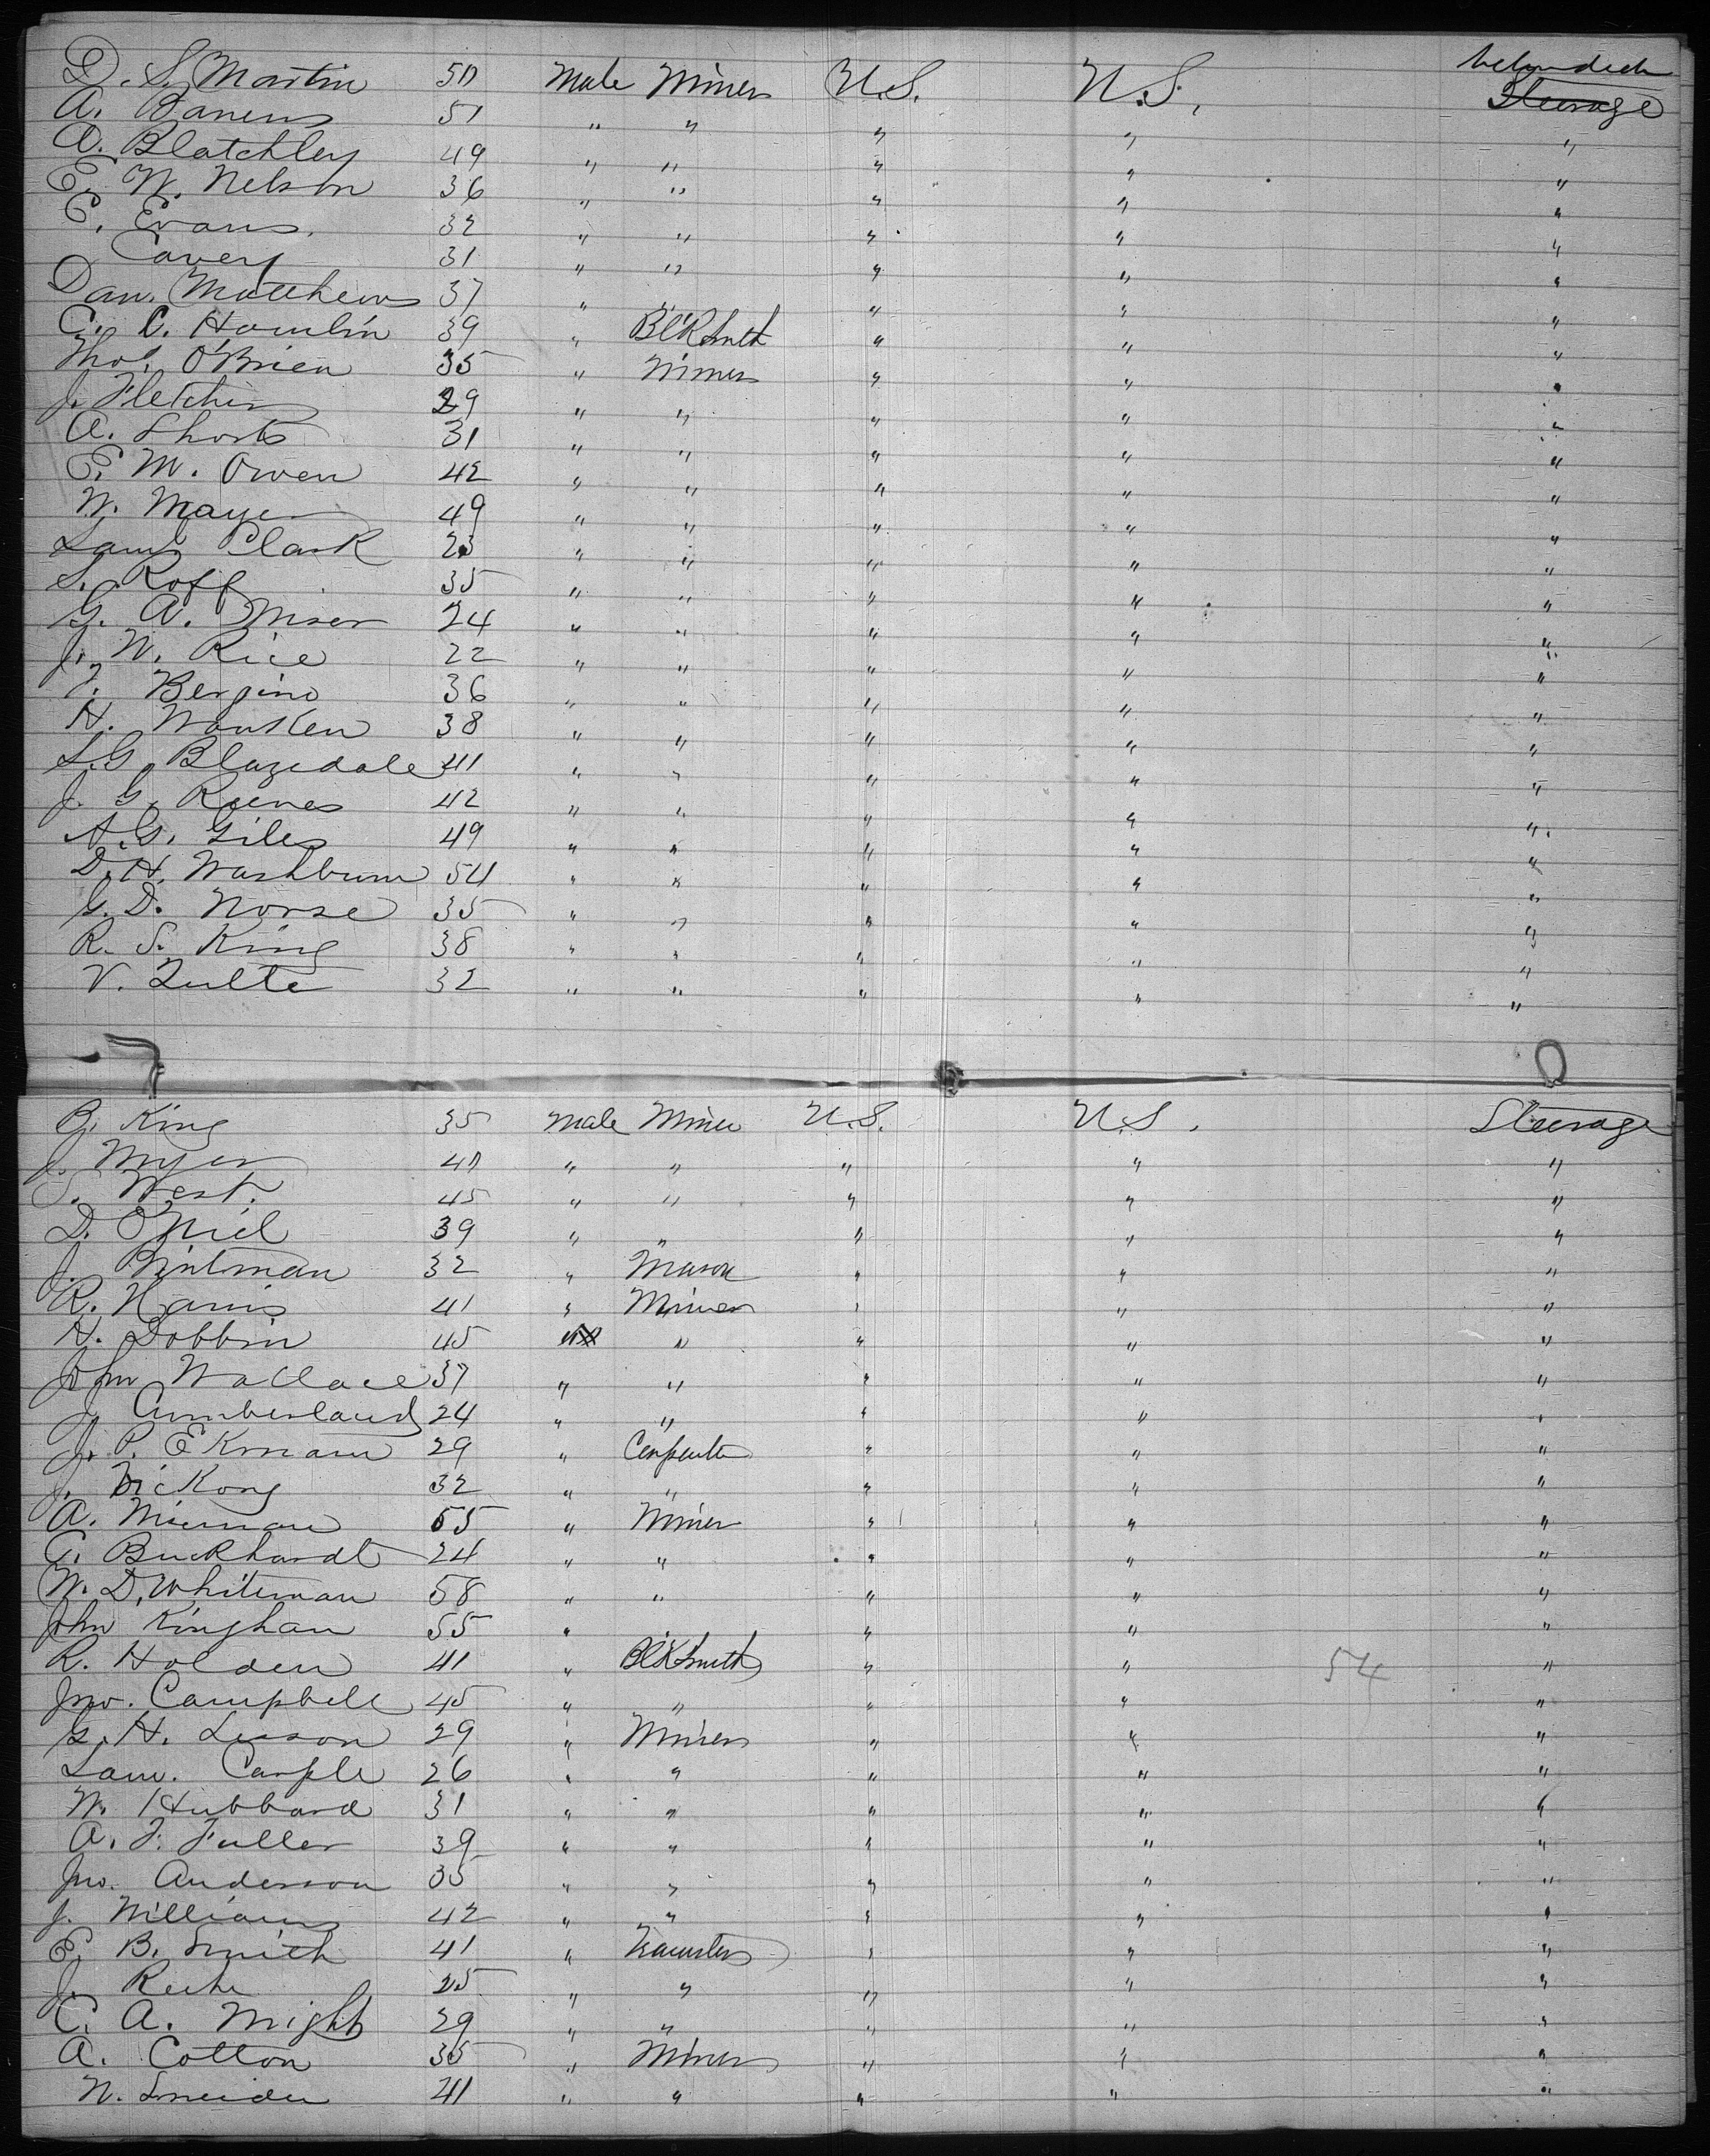 D. S. Martin 50 Male Miner U.S. U.S. Steerage
A. 51 " " " " "
A. Blatchley 49 " " " " "
E. W. Nelson 36 " " " " "
E. Evans. 32 " " " " "
Cavery 31 " " " " "
Dan. Matthews 37 " " " " "
C. C. Hamlin 39 " Bl'KSmith " " "
Thos. O'Brien 35 " Miner " " "
J. Fletcher 29 " " " " "
A. Short 31 " " " " "
E. M. Owen 42 " " " " "
W. Mayer 49 " " " " "
Saml Clark 23 " " " " "
S. Roff 35 " " " " "
G. A. 24 " " " " "
J. W. Rice 22 " " " " "
36 " " " " "
H. 38 " " " " "
S.G. Blazedale 41 " " " " "
J. G. Reeves 42 " " " " "
A.G. Giles 49 " " " " "
D.H. Washburn 54 " " " " "
G. D. Norse 35 " " " " "
R. S. King 38 " " " " "
V. Zulte 32 " " " " "
King 35 Male Miner U.S. U.S. Steerage
J. Myer 40 " " " " "
S. West. 45 " " " " "
D. O'Niel 39 " " " " "
J. Bintman 32 " Mason " " "
R. Harris 41 " Miner " " "
H. Dobbin 45 " " " "
John Wallace 37 " " " " "
J Cumberland 24 " " " " "
J. P. Ekmann 29 " Carpenter " " "
J. McKong 32 " " " " "
A. 55 " Miner " " "
G. Buckhardt 24 " " " " "
W. D. Whiteman 58 " " " " "
John Kinghan 55 " " " "
R. Holden 41 " Bl'KSmith " " 54 "
Jno. Campbell 45 " " " " "
G. H. Lesson 29 " Miner " " "
Sam. Carple 26 " " " " "
W. Hubbard 31 " " " " "
A. F. Fuller 39 " " " " "
Jno. Anderson 35 " " " " "
J. Williams 42 " " " " "
E. B. Smith 41 " Teamster " " "
J. 25 " " " " "
C. A. Wright 29 " " " " "
A. Cotton 35 " Miner " " "
N. Sneider 41 " " " " "